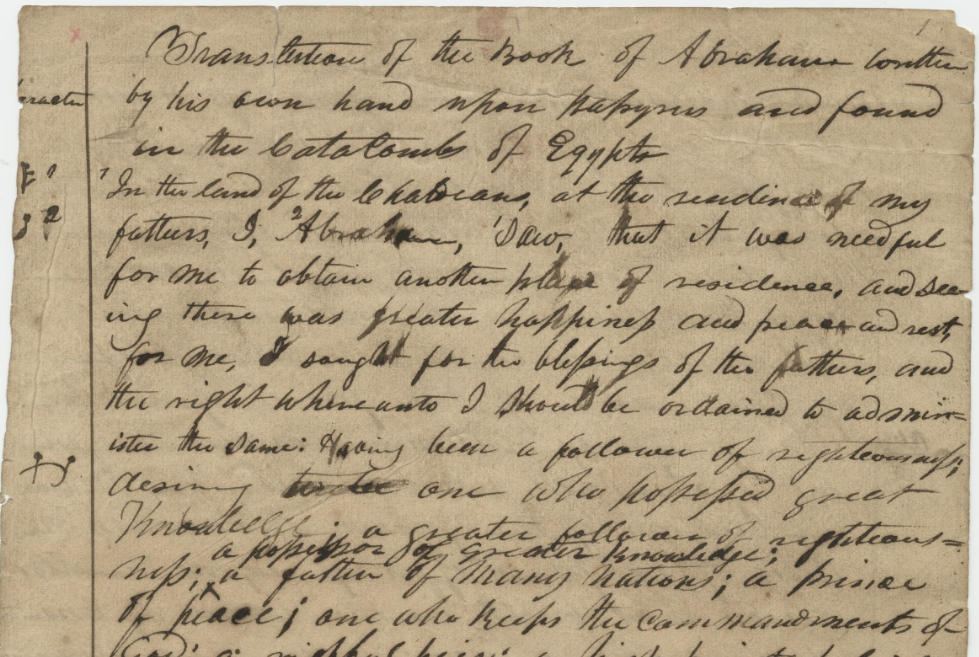 Translation of the Book of Abraham written
by his own hand upon papyrus and found
in the CataCombs of Egypts
In the land of the Chaldeans, at the residence of my
fathers, I, Abraham, saw, that it was needful
for me to obtain another place of residence, and see
ing there was greater happiness and peace and rest,
for me, I sought for the blessings of the fathers, and
the right whereunto I should be ordained to admin=
ister the same: Having been a follower of righteousness;
desiring one who possessed great
Knowledge; a greater follower of righteous=
a possessor of greater Knowledge;
ness; a father of many nations; a prince
of peace; one who keeps the commandments of
God; a